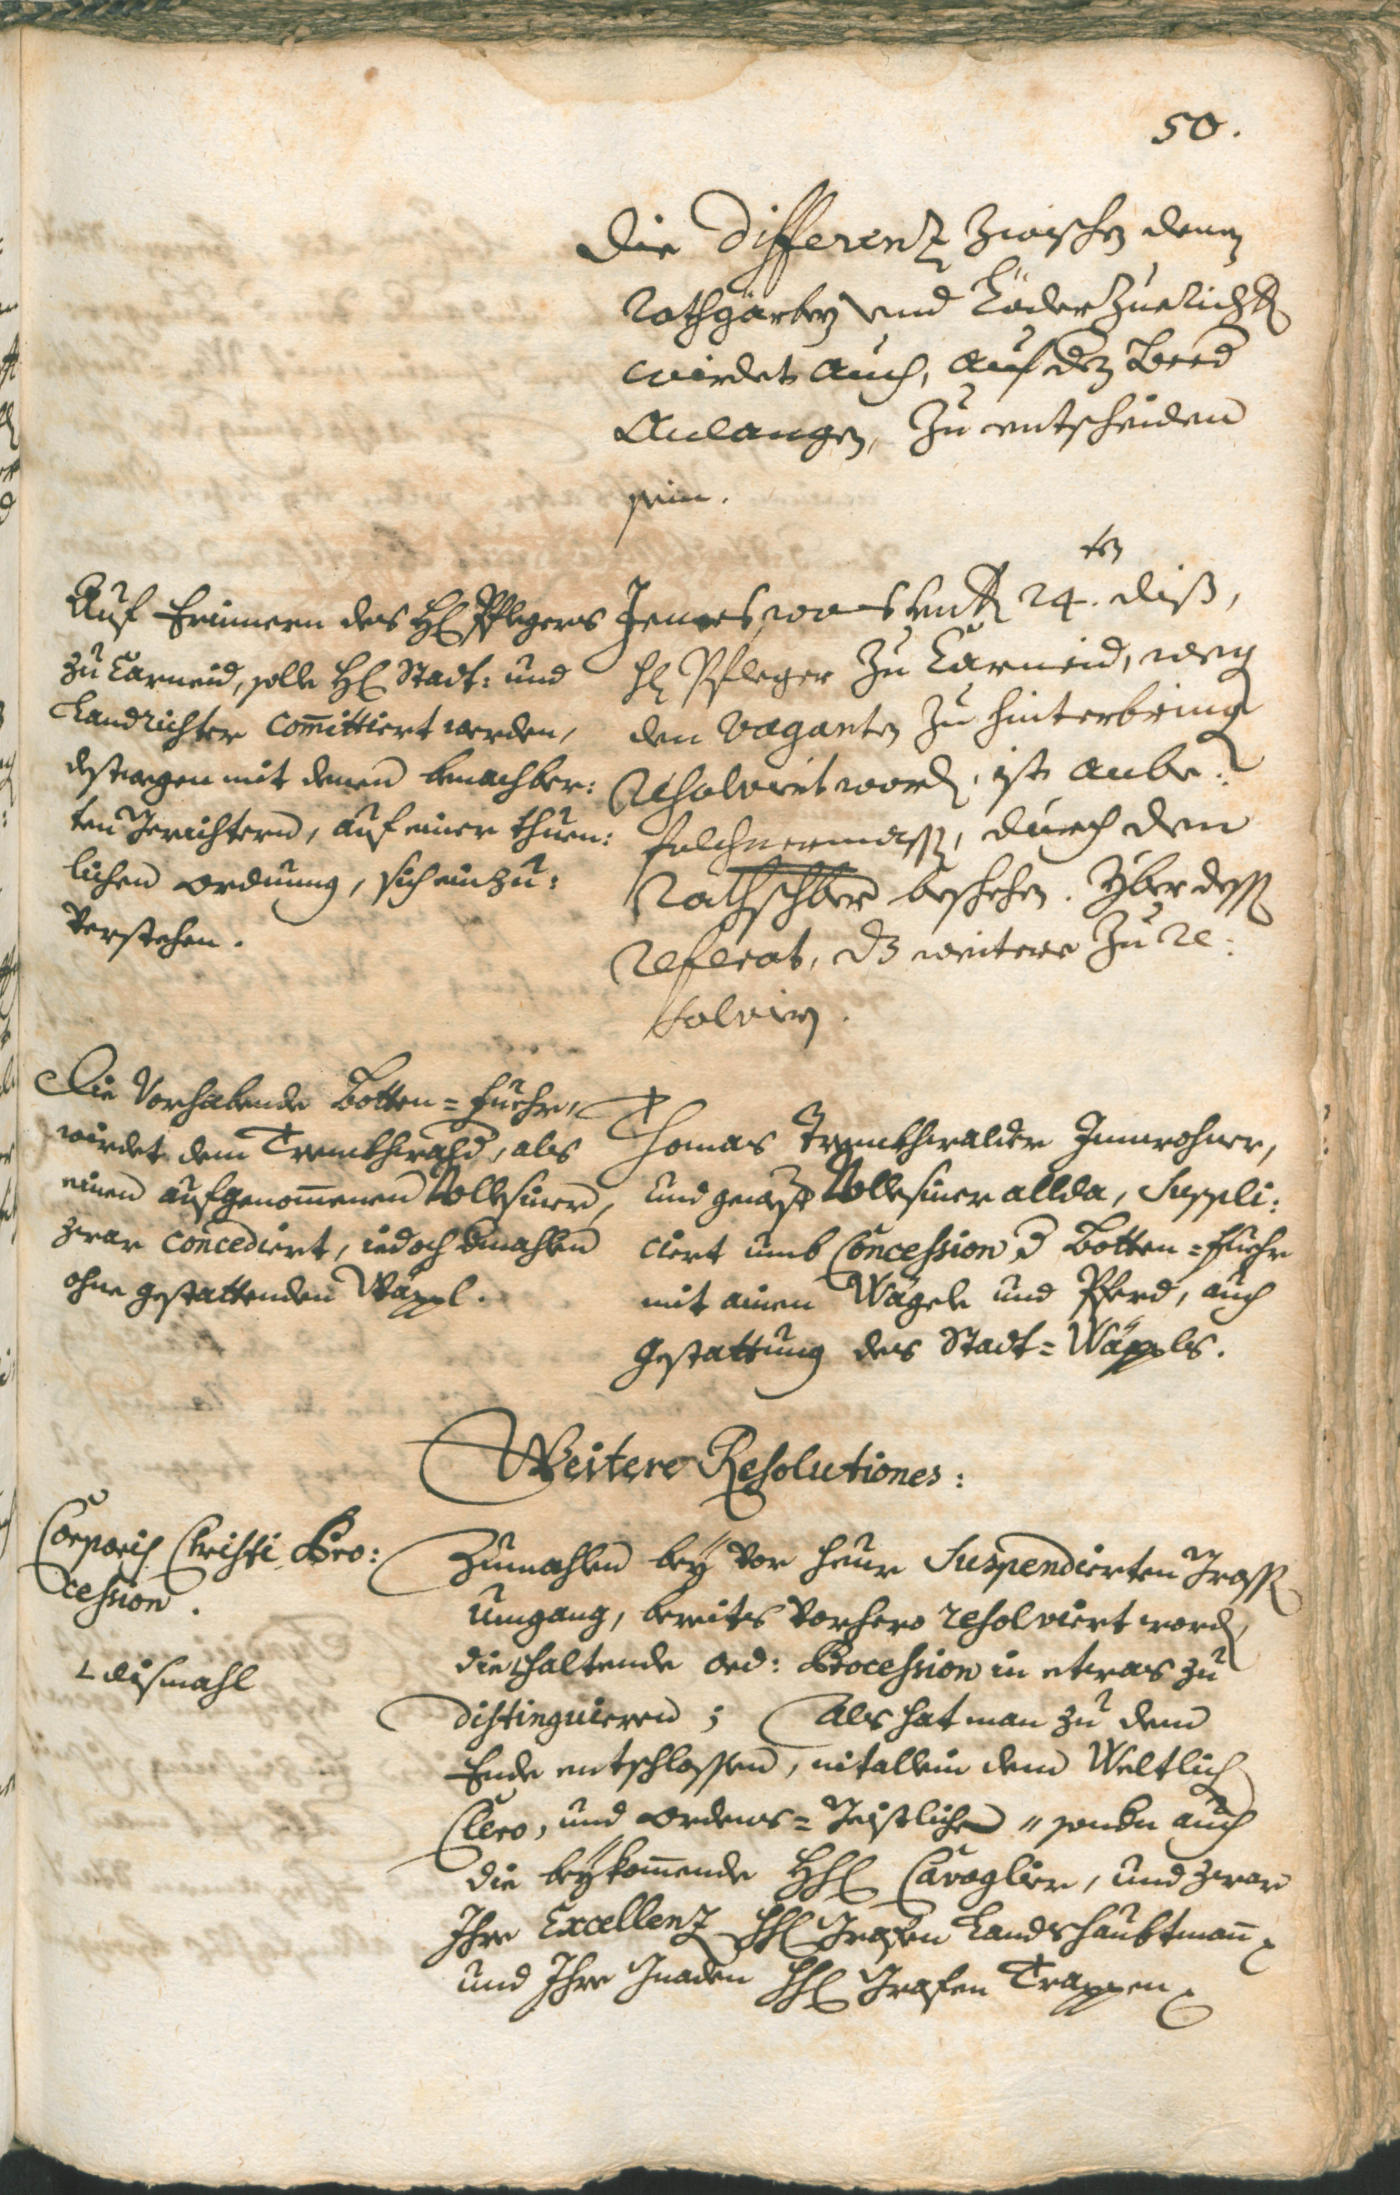 50.
Die Differenz zwischen denen
Rothgärben und Löderzuericht
wirdet auch, auf dem Beed
Anlangen, zu entscheiden
sein.
Auf Erinnern des H Pflegers
zu Carneid, solle H Stadt: und
Landtrichter committiert werden,
destwegen mit denen benachber:
ten Gerichtern, auf einer thuen:
lichen ordnung, sich einzu:
verstehen.
Jenes, was 24.ten diß,
H Pfleger zu Carneid, weg
den Vaganten zu hinterbring
resolviert word, ist anbe:
folchnermassen, durch den
Rathschber beschehen. Yber dess
referat, dz weitere zu re:
solvirn.
Die Vorhabende Botten=fuehr,
wirdet dem Trembthwald, als
einen aufgenommenen Vollsiner,
zwar concediert, iedoch dmahlen
ohne gestattenden Wäppl.
Thomas Trembthwalder Innwohner,
und gewest Vollsiner allda, Suppli:
ciert umb Concession d Botten=fuehr
mit ainen Wägele und Pferd, auch
gestattung des Stadt=Wäppls.
Weitere Resolutiones:
Corporis Christi Pro:
cession.
dismahl
Zumahlen bey vor heur Suspendierten Gross
Umgang, bereits vorhero resolviert word,
die haltende ord: Procession in etwas zu
distinguieren; Als hat man zu dem
Ende entschlossen, nit allein dem Weltlich
Clero, und ordens=Geistlichen sonder auch
die beykommende HH Cavaglier, und zwar
Ihre Excellenz HH Grafen Landshaubtmann
und Ihre Gnaden HH Grafen Trappen